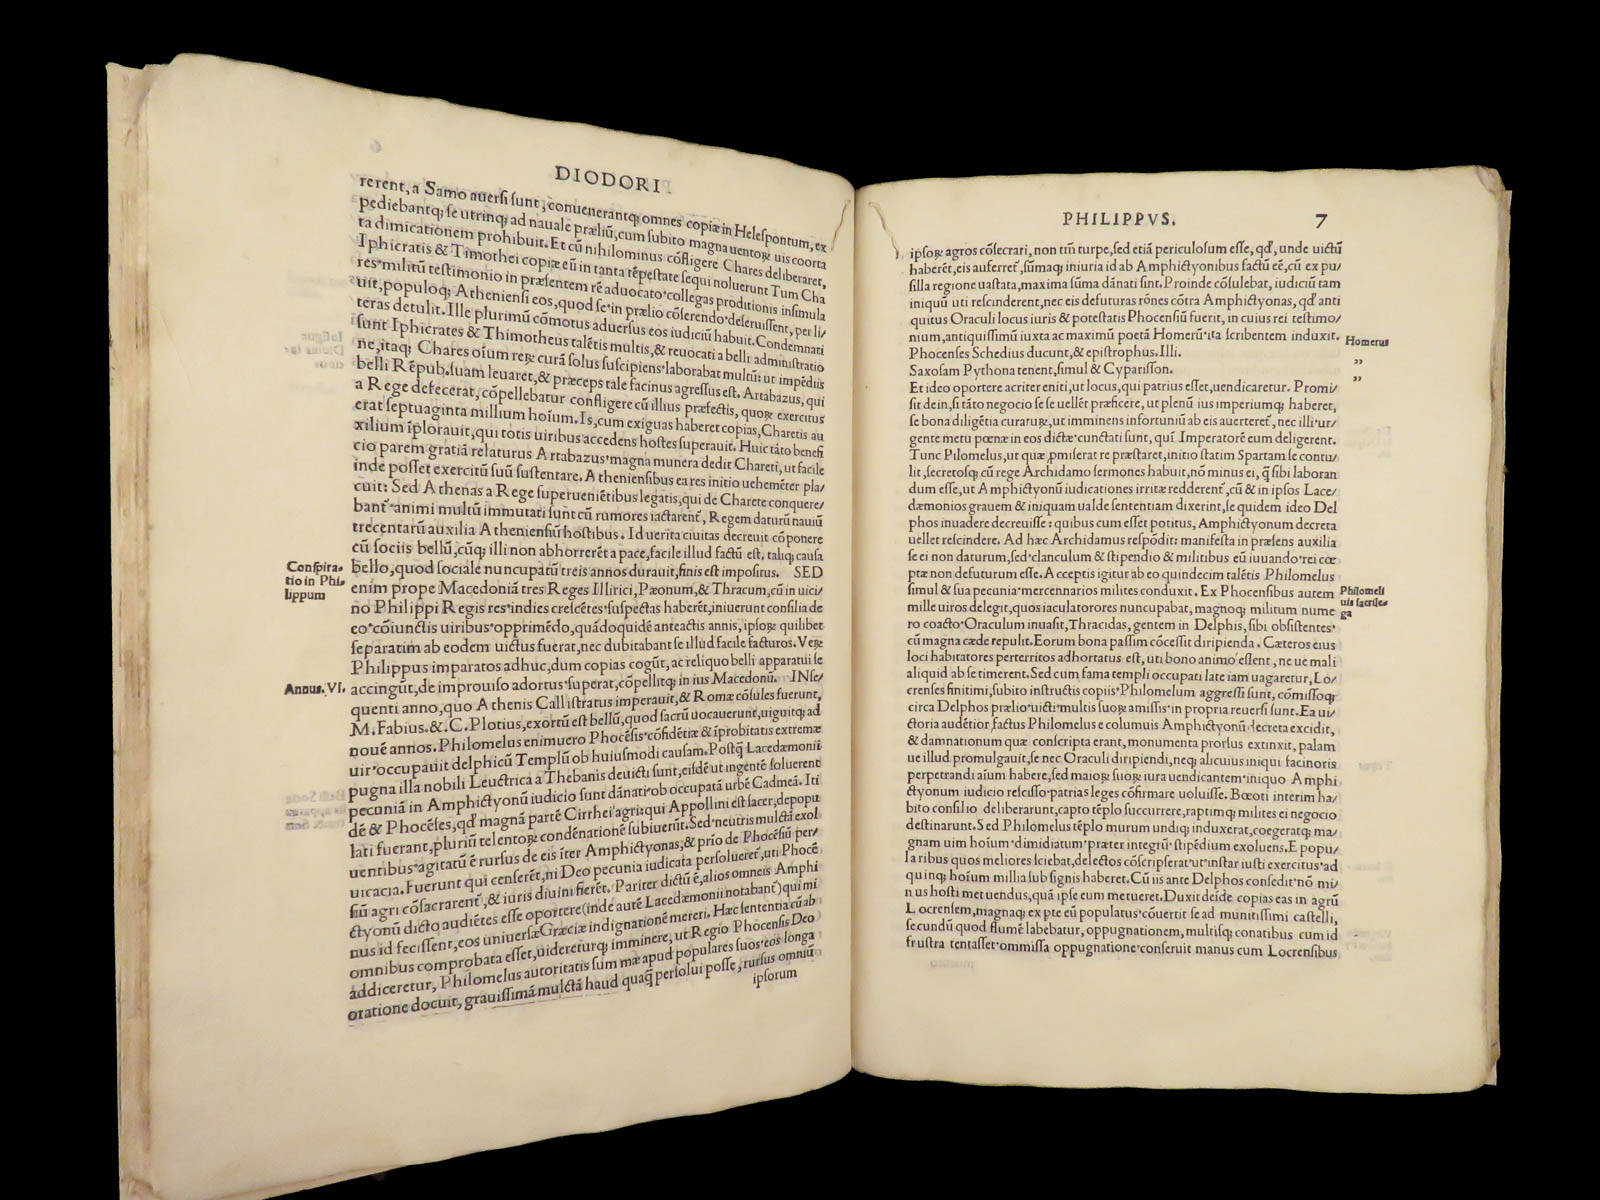 DIODORI
rerent, a Samo auersi sunt, cõuenerantq; omnes copiæ in Helespontum, ex
pediebantq; se utrinq; ad nauale præliũ, cum subito magna uentoꝝ uis coorta
ta dimicationem prohibuit. Et cũ nihilominus cõfligere Chares deliberaret,
Iphicratis & Timothei copiæ eũ in tanta tẽpestate sequi noluerunt Tum Cha
res militũ testimonio in præsentem rẽ aduocato collegas proditionis insimula
uit, populoq; Atheniensi eos, quod se in prælio cõserendo deseruissent, per li/
teras detulit. Ille plurimũ cõmotus aduersus eos iudiciũ habuit. Condemnati
sunt Iphicrates & Timotheus talẽtis multis, & reuocati a belli administratio
ne, itaq; Chares oĩum reꝝ curã solus suscipiens laborabat multũ: ut impẽdiis
belli Rẽpub. suam leuaret, & præceps tale facinus agressus est. Artabazus, qui
a Rege defecerat, cõpellebatur confligere cũ illius præfectis, quoꝝ exercitus
erat septuaginta millium hoĩum. Is, cum exiguas haberet copias, Charetis au
xilium ĩplorauit, qui totis uiribus accedens hostes superauit. Huic tãto benefi
cio parem gratiã relaturus Artabazus magna munera dedit Chareti, ut facile
inde posset exercitũ suũ sustentare. Atheniensibus ea res initio uehemẽter pla/
cuit: Sed Athenas a Rege superueniẽtibus legatis, qui de Charete conquere/
bant᷑ animi multũ immutati sunt cũ rumores iactarent᷑, Regem daturũ nauiũ
trecentarũ auxilia Atheniensiũ hostibus. Id uerita ciuitas decreuit cõponere
cũ sociis bellũ, cũq; illi non abhorrerẽt a pace, facile illud factũ est. taliq; causa
bello, quod sociale nuncupatũ treis annos durauit, finis est impositus. SED
Conspira-
tio in Phi-
lippum
enim prope Macedoniã tres Reges Illirici, Pæonum, & Thracum, cũ in uici/
no Philippi Regis res indies crescẽtes suspectas haberẽt, iniuerunt consilia de
eo cõiunctis uiribus opprimẽdo, quãdoquidẽ anteactis annis, ipsoꝝ quilibet
separatim ab eodem uictus fuerat, nec dubitabant se illud facile facturos. Veꝝ
Philippus imparatos adhuc, dum copias cogũt, ac reliquo belli apparatui se
accingũt, de improuiso adortus superat, cõpellitq; in ius Macedonũ. INse/
Annus. VI.
quenti anno, quo Athenis Callistratus imperauit, & Romæ cõsules fuerunt,
M. Fabius. &. C. Plotius, exortũ est bellũ, quod sacrũ uocauerunt, uiguitq; ad
nouẽ annos. Philomelus enimuero Phocẽsis cõfidẽtiæ & ĩprobitatis extremæ
uir occupauit delphicũ Templũ ob huiusmodi causam. Postq̃ Lacedæmonii
pugna illa nobili Leuctrica a Thebanis deuicti sunt, eisdẽ ut ingentẽ soluerent
pecuniã in Amphictyonũ iudicio sunt dãnati ob occupatã urbẽ Cadmeã. Iti
dẽ & Phocẽses, qđ magnã partẽ Cirrhei agri: qui Appollini est sacer, depopu
lati fuerant, pluriũ telentoꝝ condẽnationẽ subiuerũt. Sed neutris mulctã exol
uentibus agitatũ ẽ rursus de eis ĩter Amphictyonas, & prio de Phocẽsiũ per/
uicacia. Fuerunt qui censerẽt, ni Deo pecunia iudicata persolueret᷑, uti Phocẽ
siũ agri cõsacrarent᷑, & iuris diuini fierẽt. Pariter dictũ ẽ, alios omneis Amphi
ctyonũ dicto audiẽtes esse oportere (inde autẽ Lacedæmonii notabant᷑) qui mi
nus id fecissent, eos uniuersæ Græciæ indignationẽ mereri. Hæc sententia cũ ab
omnibus comprobata esset, uidereturq; imminere, ut Regio Phocensis Deo
addiceretur, Philomelus autoritatis summæ apud populares suos eos longa
oratione docuit, grauissimã mulctã haud quaq̃ persolui posse, rursus omniũ
ipsorum
PHILIPPVS. 7
ipsoꝝ agros cõsecrari, non tm̃ turpe, sed etiã periculosum esse, qđ, unde uictũ
haberẽt, eis auferret᷑, sũmaq; iniuria id ab Amphictyonibus factũ eẽ, cũ ex pu/
silla regione uastata, maxima sũma dãnati sint. Proinde cõsulebat, iudiciũ tam
iniquũ uti rescinderent, nec eis defuturas rõnes cõtra Amphictyonas, qđ anti
quitus Oraculi locus iuris & potestatis Phocensiũ fuerit, in cuius rei testimo/
nium, antiquissimũ iuxta ac maximũ poetã Homerũ ita scribentem induxit.
Homerus
Phocenses Schedius ducunt, & epistrophus. Illi.
„
Saxosam Pythona tenent, simul & Cyparisson.
„
Et ideo oportere acriter eniti, ut locus, qui patrius esset, uendicaretur. Promi/
sit dein, si tãto negocio se se uellẽt præficere, ut plenũ ius imperiumq; haberet,
se bona diligẽtia curaturꝝ, ut imminens infortuniũ ab eis auerteret᷑, nec illi ur/
gente metu pœnæ in eos dictæ cunctati sunt, quĩ Imperatorẽ eum deligerent.
Tunc Pilomelus, ut quæ ꝓmiserat re præstaret, initio statim Spartam se contu/
lit, secretosq; cũ rege Archidamo sermones habuit, nõ minus ei, q̃ sibi laboran
dum esse, ut Amphictyonũ iudicationes irritæ redderent᷑, cũ & in ipsos Lace/
dæmonios grauem & iniquam ualde sententiam dixerint, se quidem ideo Del
phos inuadere decreuisse: quibus cum esset potitus, Amphictyonum decreta
uellet rescindere. Ad hæc Archidamus respõdit: manifesta in præsens auxilia
se ei non daturum, sed clanculum & stipendio & militibus eũ iuuando rei cœ
ptæ non defuturum esse. Acceptis igitur ab eo quindecim talẽtis Philomelus
simul & sua pecunia mercennarios milites conduxit. Ex Phocensibus autem
Philomeli
uis sacrile-
ga
mille uiros delegit, quos iaculatorores nuncupabat, magnoq; militum nume
ro coacto Oraculum inuasit, Thracidas, gentem in Delphis, sibi obsistentes
cũ magna cæde repulit. Eorum bona passim cõcessit diripienda. Cæteros eius
loci habitatores perterritos adhortatus est, uti bono animo essent, ne ue mali
aliquid ab se timerent. Sed cum fama templi occupati late iam uagaretur, Lo/
crenses finitimi, subito instructis copiis Philomelum aggressi sunt, cõmissoq;
circa Delphos prælio uicti multis suoꝝ amissis in propria reuersi sunt. Ea ui/
ctoria audẽtior, factus Philomelus e columuis Amphictyonũ decreta excidit,
& damnationum quæ conscripta erant, monumenta prorsus extinxit, palam
ue illud promulgauit, se nec Oraculi diripiendi, neq; alicuius iniqui facinoris
perpetrandi aĩum habere, sed maioꝝ suoꝝ iura uendicantem iniquo Amphi
ctyonum iudicio rescisso patrias leges cõfirmare uoluisse. Bœoti interim ha/
bito consilio deliberarunt, capto tẽplo succurrere, raptimq; milites ei negocio
destinarunt. Sed Philomelus tẽplo murum undiq; induxerat, coegeratq; ma/
gnam uim hoĩum dimidiatum præter integrũ stipẽdium exoluens. E popu/
laribus quos meliores sciebat, delectos cõscripserat ut instar iusti exercitus ad
quinq; hoĩum millia sub signis haberet. Cũ iis ante Delphos consedit nõ mi/
nus hosti metuendus, quã ipse eum metueret. Duxit deĩde copias eas in agrũ
Locrensem, magnaq; ex pte eũ populatus cõuertit se ad munitissimi castelli,
secundũ quod flumẽ labebatur, oppugnationem, multisq; conatibus cum id
frustra tentasset ommissa oppugnatione conseruit manus cum Locrensibus